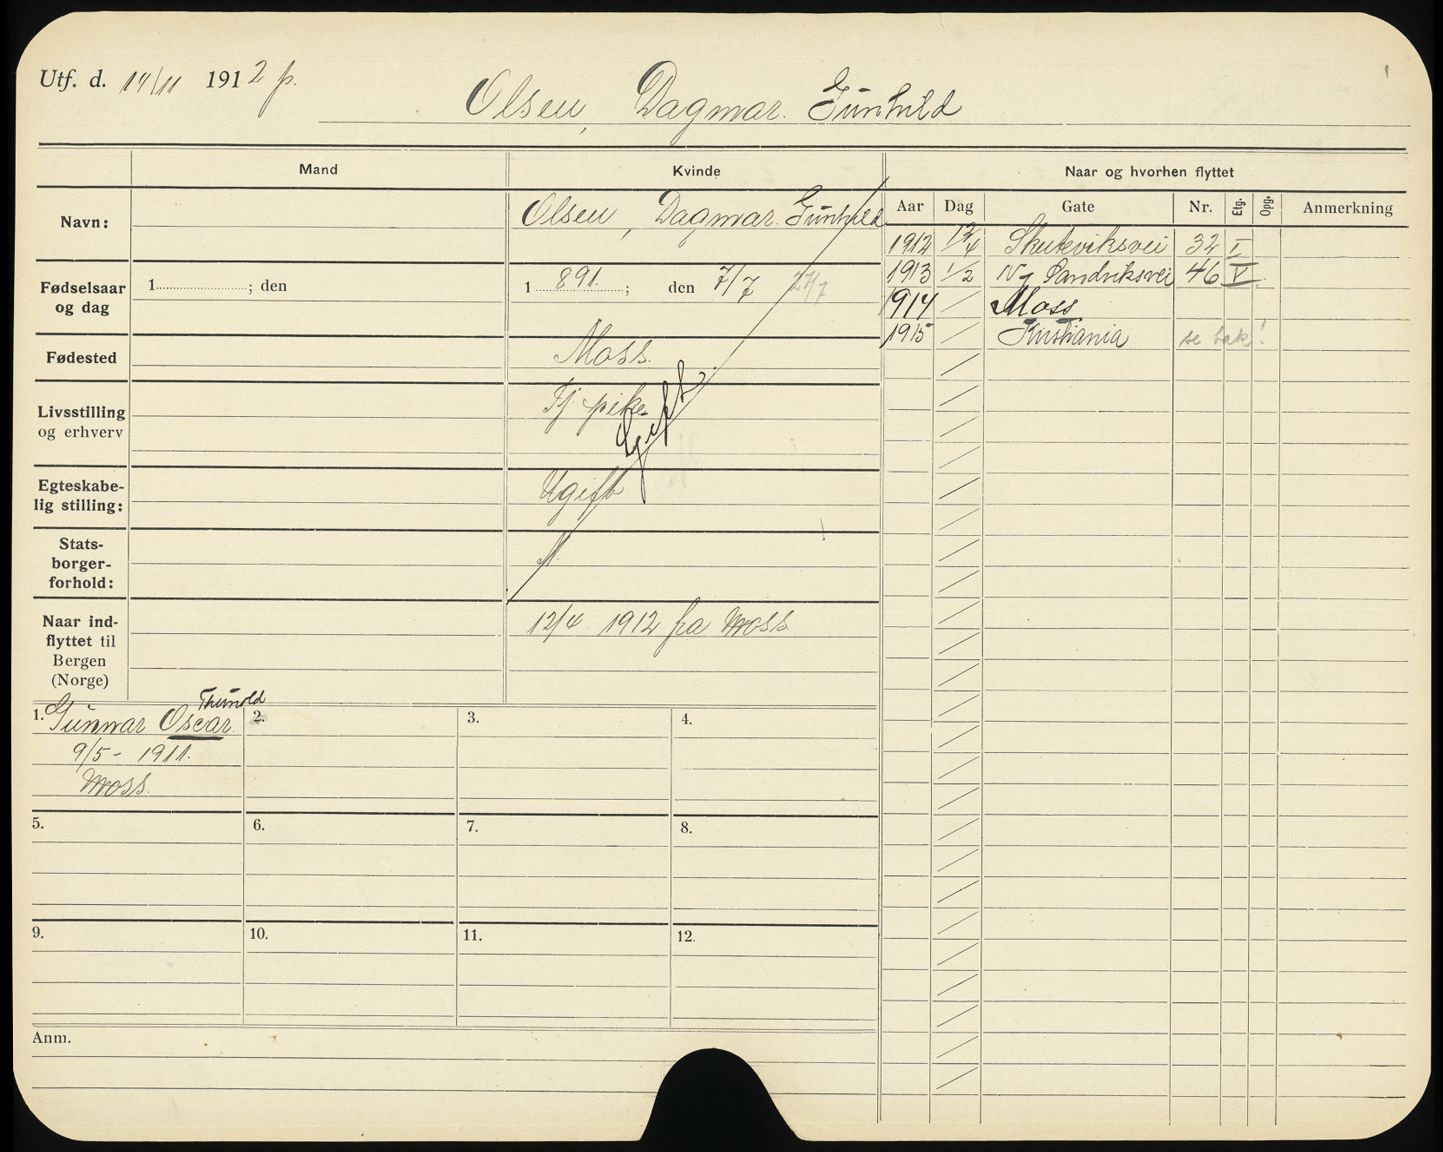 Utf. d. 14/11 1912 p.
Olsen, Dagmar Gunhild
Mand
Kvinde
Naar og hvorhen flyttet
Aar Dag Gate Nr. Etg. Opg. Anmerkning
Navn:
Olsen, Dagmar Gunhild
Fødselsaar
og dag
1 ; den
1 891. ; den 7/7 27/7
Fødested
Moss.
Livsstilling
og erhverv
Tj. pike
Gift
Egteskabe-
lig stilling:
Ugift
Stats-
borger-
forhold:
N.
Naar ind-
flyttet til
Bergen
(Norge)
12/4 1912 fra Moss.
1912 12/4 Skuteviksvei 32 I
1913 1/2 N. Sandviksvei 46 V
1914 / Moss
1915 / Kristiania se bak!
1. Gunnar Oscar Thorvold
9/5 - 1911.
Moss.
2.
3.
4.
5.
6.
7.
8.
9.
10.
11.
12.
Anm.